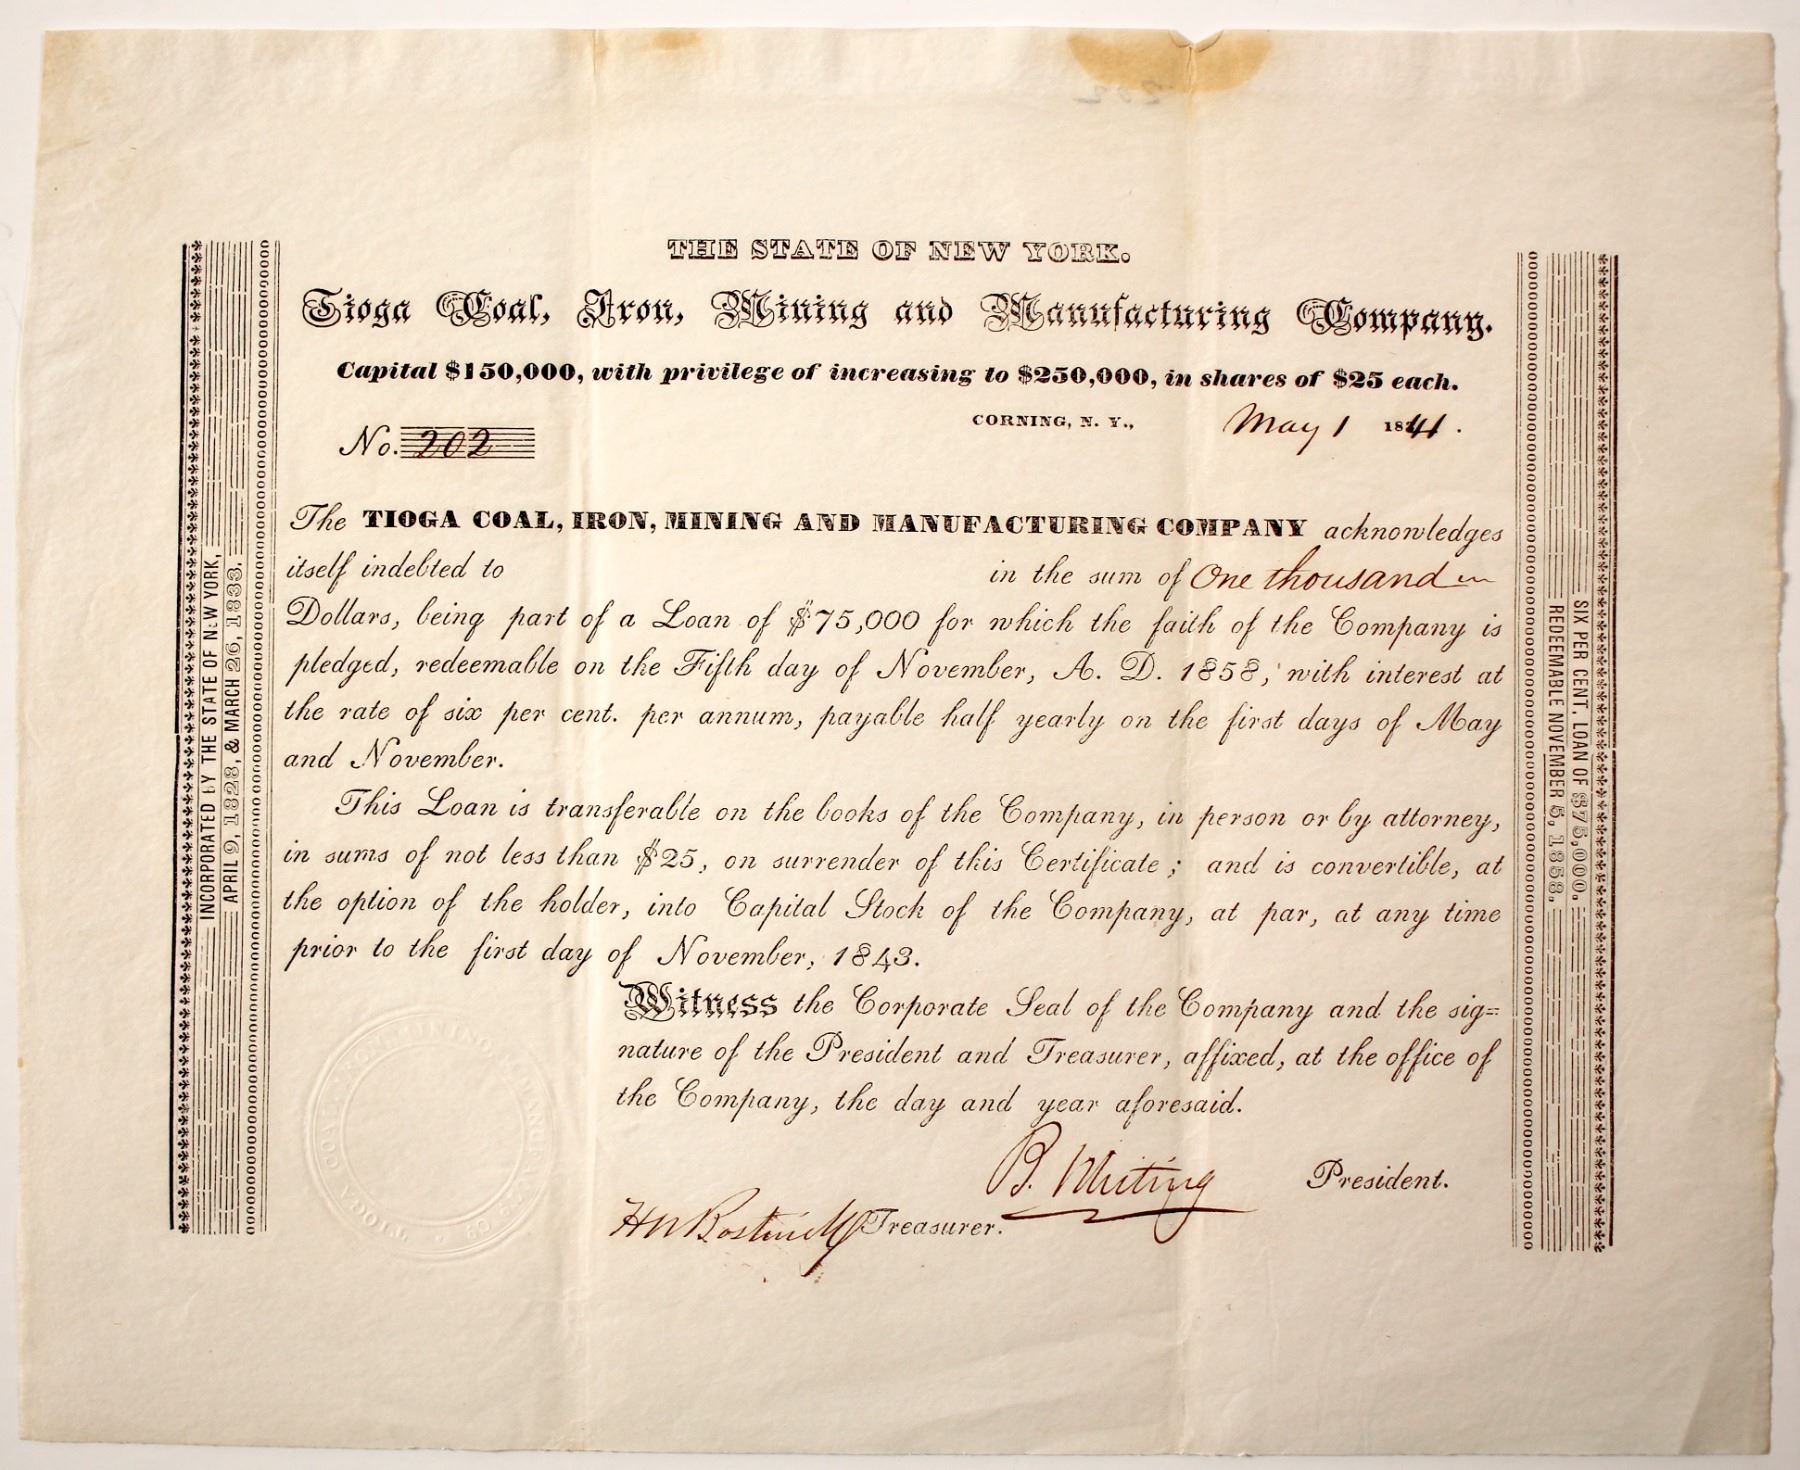 THE STATE OF NEW YORK.
Tioga Coal, Iron, Mining and Manufacturing Company.
Capital $150,000, with privilege of increasing to $250,000, in shares of $25 each.
CORNING, N. Y., May 1 1841.
No. 202
The TIOGA COAL, IRON, MINING AND MANUFACTURING COMPANY acknowledges
itself indebted to in the sum of One thousand
Dollars, being part of a Loan of $75,000 for which the faith of the Company is
pledged, redeemable on the Fifth day of November, A. D. 1858, with interest at
the rate of six per cent. per annum, payable half yearly on the first days of May
and November.
This Loan is transferable on the books of the Company, in person or by attorney,
in sums of not less than $25, on surrender of this Certificate; and is convertible, at
the option of the holder, into Capital Stock of the Company, at par, at any time
prior to the first day of November, 1843.
Witness the Corporate Seal of the Company and the sig=
nature of the President and Treasurer, affixed, at the office of
the Company, the day and year aforesaid.
B. Whiting President.
Treasurer.
INCORPORATED BY THE STATE OF NEW YORK,
APRIL 9, 1828, & MARCH 26, 1833.
SIX PER CENT. LOAN OF $75,000,
REDEEMABLE NOVEMBER 5, 1858.